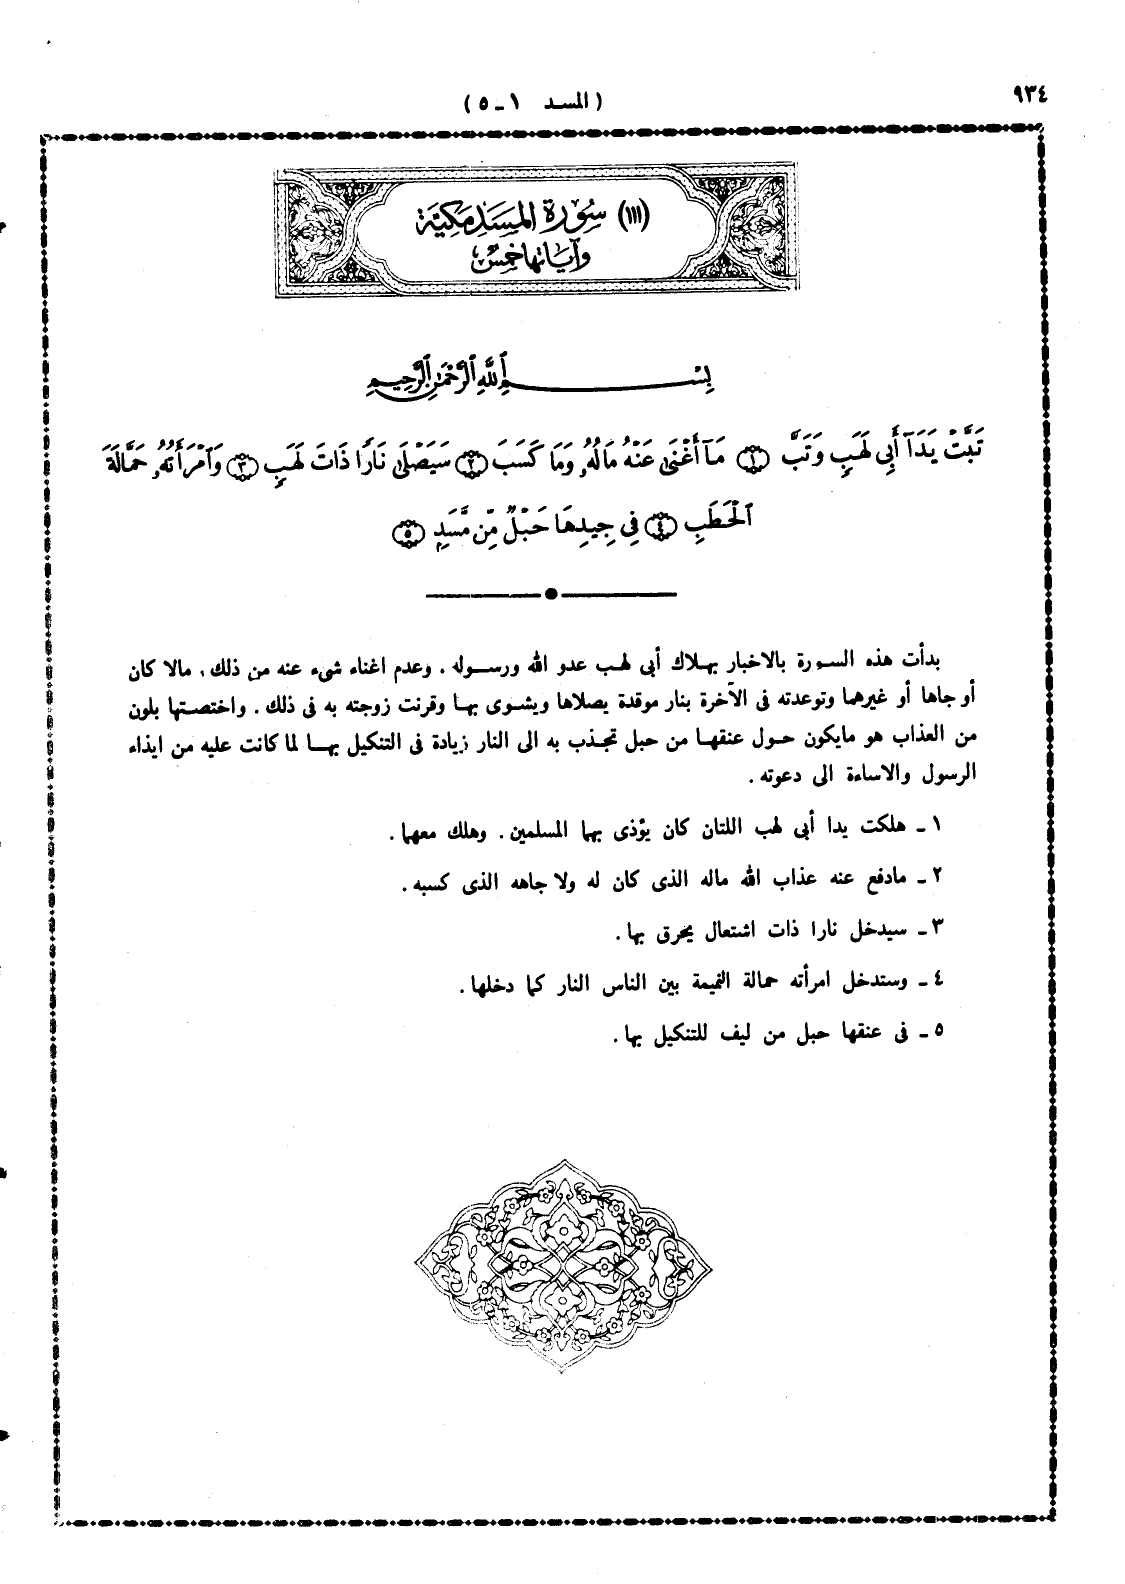 ٩٣٤
(المسد ١ــ٥)
(١١١) سُورَة المَسَد مَكيّة
وآيَاتها خمسٌ
بِسْمِ ٱللَّهِ ٱلرَّحْمَٰنِ ٱلرَّحِيمِ
تَبَّتْ يَدَآ أَبِى لَهَبٍ وَتَبَّ ۝١ مَآ أَغْنَىٰ عَنْهُ مَالُهُۥ وَمَا كَسَبَ ۝٢ سَيَصْلَىٰ نَارًا ذَاتَ لَهَبٍ ۝٣ وَٱمْرَأَتُهُۥ حَمَّالَةَ
ٱلْحَطَبِ ۝٤ فِى جِيدِهَا حَبْلٌ مِّن مَّسَدٍۭ ۝٥
بدأت هذه السورة بالاخبار بهلاك أبى لهب عدو الله ورسوله . وعدم اغناء شىء عنه من ذلك ، مالا كان
أو جاها أو غيرهما وتوعدته فى الآخرة بنار موقدة يصلاها ويشوى بها وقرنت زوجته به فى ذلك . واختصتها بلون
من العذاب هو مايكون حول عنقها من حبل تجذب به الى النار زيادة فى التنكيل بها لما كانت عليه من ايذاء
الرسول والاساءة الى دعوته .
١ ــ هلكت يدا أبى لهب اللتان كان يؤذى بهما المسلمين . وهلك معهما .
٢ ــ مادفع عنه عذاب الله ماله الذى كان له ولا جاهه الذى كسبه .
٣ ــ سيدخل نارا ذات اشتعال يحرق بها .
٤ ــ وستدخل امرأته حمالة النميمة بين الناس النار كما دخلها .
٥ ــ فى عنقها حبل من ليف للتنكيل بها .